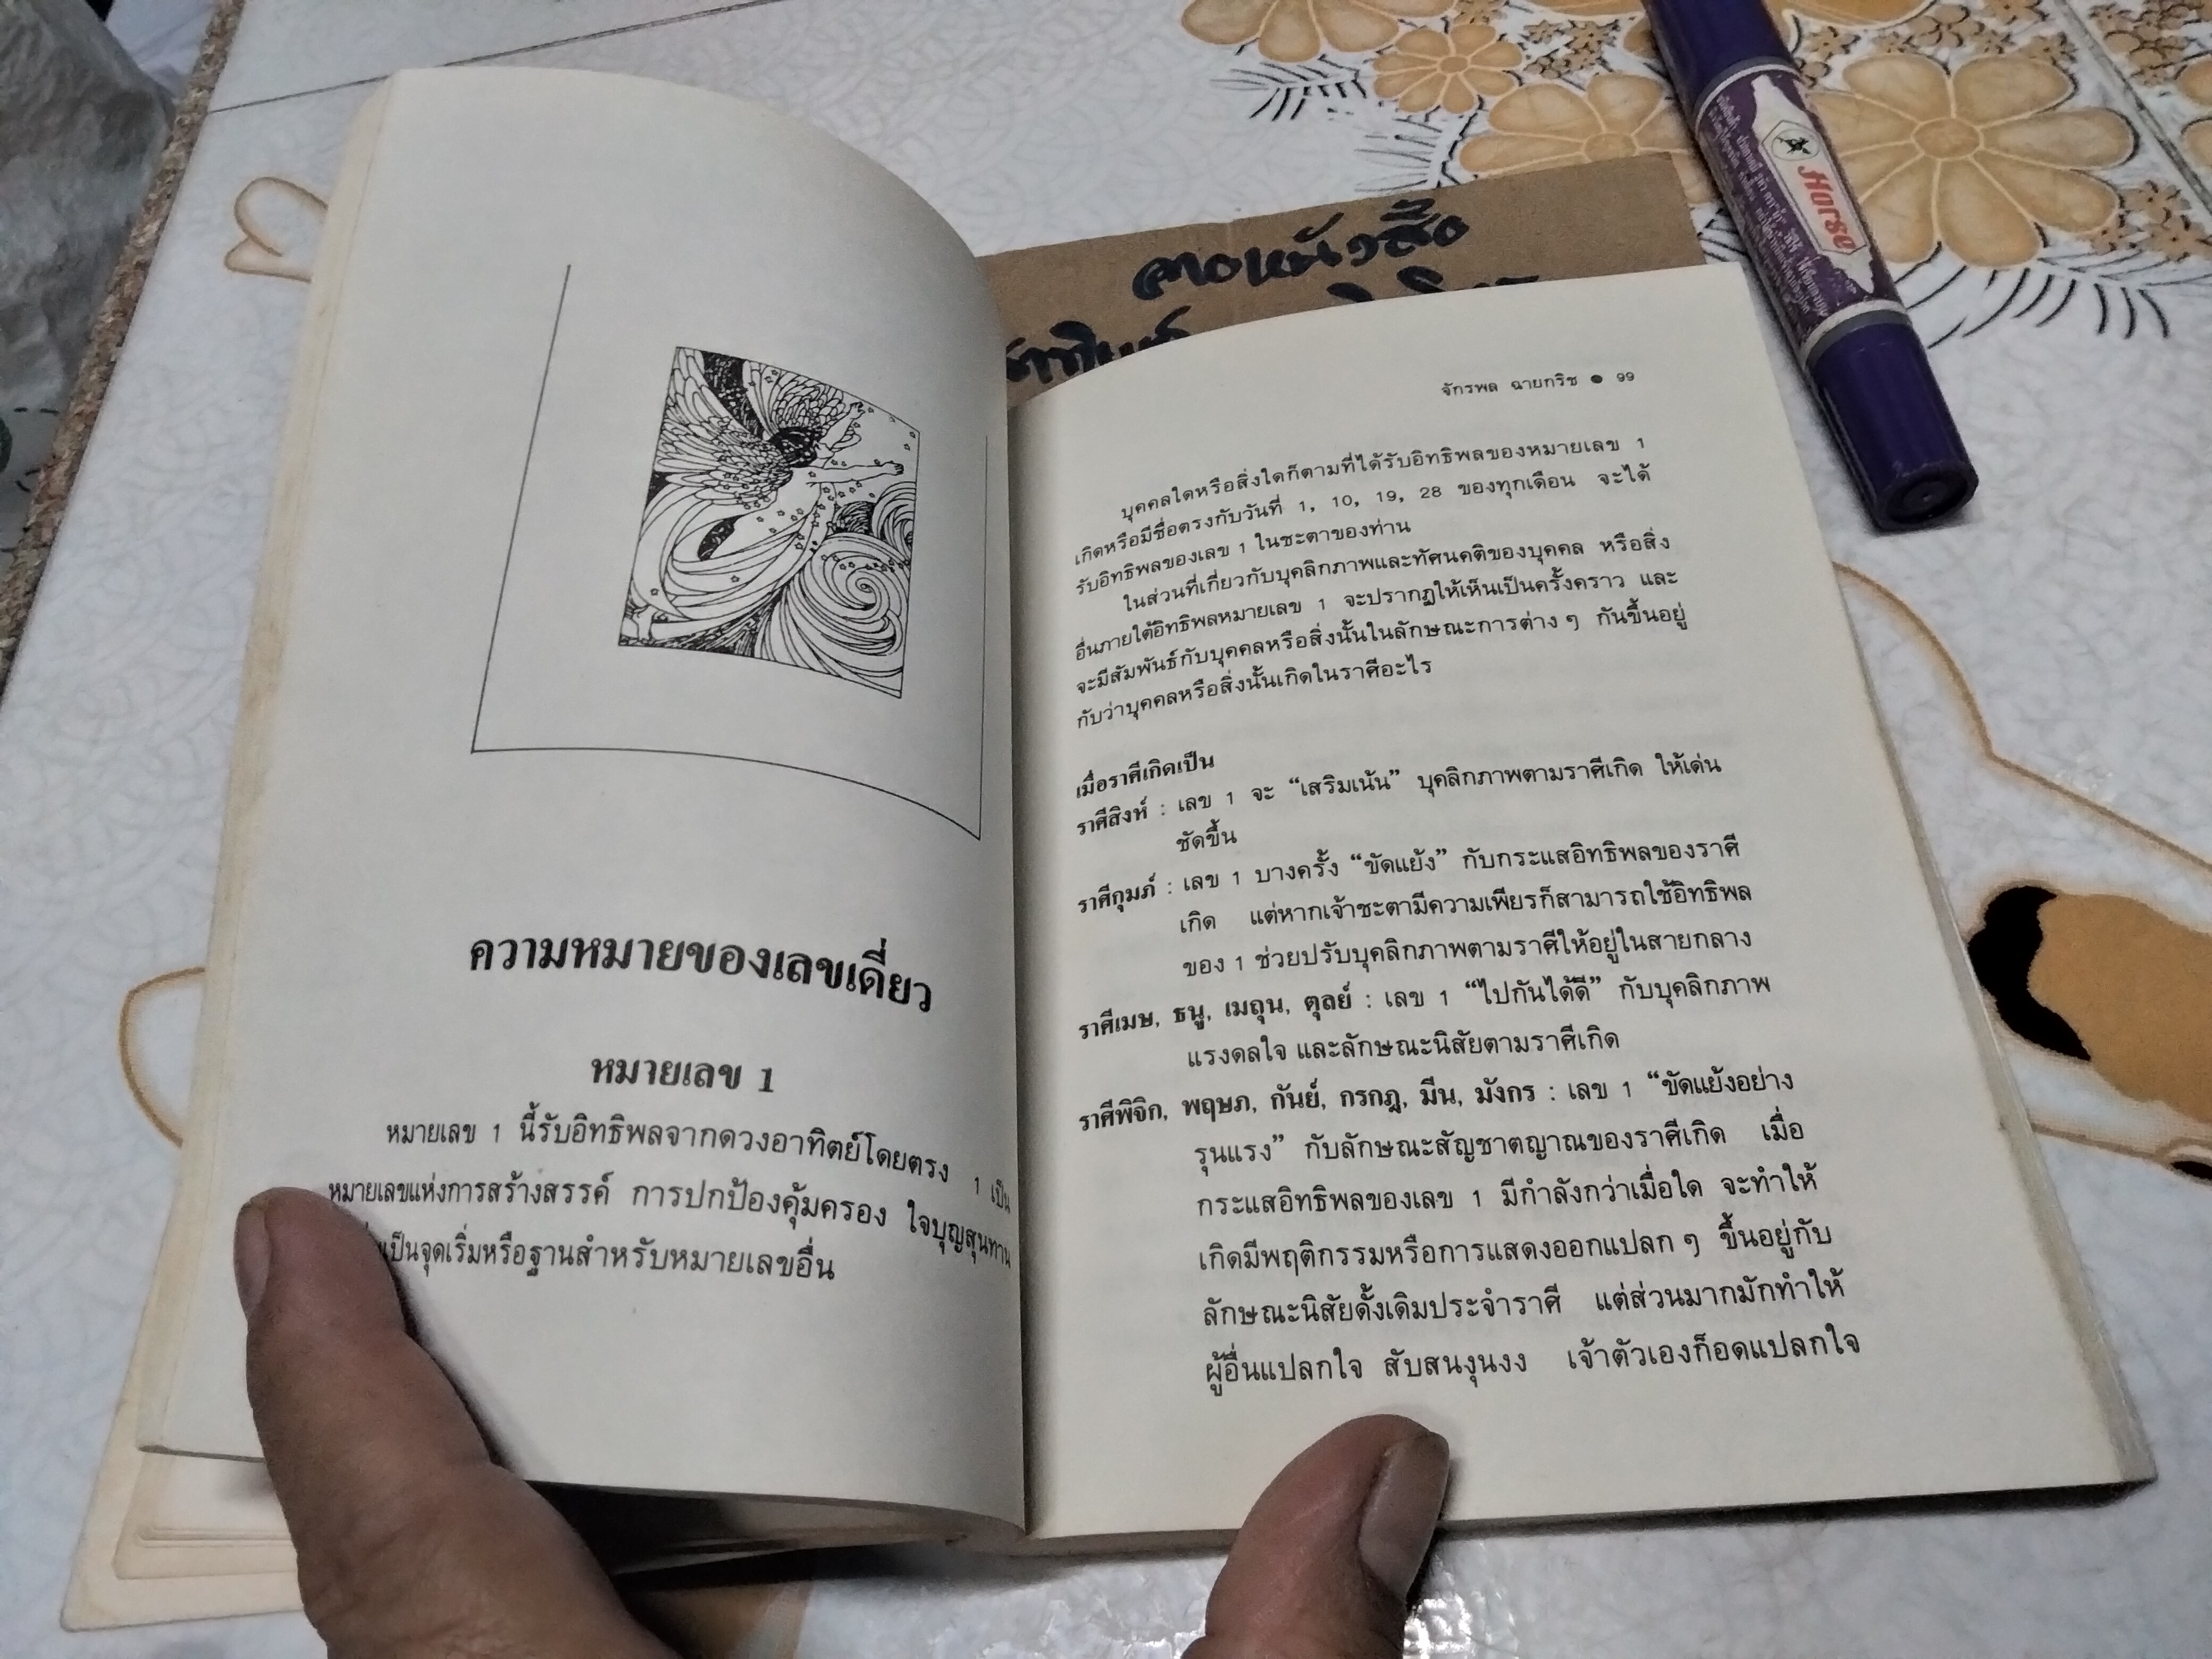 ความหมายของเลขเดี่ยว
หมายเลข 1
หมายเลข 1 นี้รับอิทธิพลจากดวงอาทิตย์โดยตรง 1 เป็น
หมายเลขแห่งการสร้างสรรค์ การปกป้องคุ้มครอง ใจบุญสุนทาน
เป็นจุดเริ่มหรือฐานสำหรับหมายเลขอื่น
คาดหนังสือ
Horse
จักรพล ฉายกริช ● 99
บุคคลใดหรือสิ่งใดก็ตามที่ได้รับอิทธิพลของหมายเลข 1
เกิดหรือมีชื่อตรงกับวันที่ 1, 10, 19, 28 ของทุกเดือน จะได้
รับอิทธิพลของเลข 1 ในชะตาของท่าน
ในส่วนที่เกี่ยวกับบุคลิกภาพและทัศนคติของบุคคล หรือสิ่ง
อื่นภายใต้อิทธิพลหมายเลข 1 จะปรากฏให้เห็นเป็นครั้งคราว และ
จะมีสัมพันธ์กับบุคคลหรือสิ่งนั้นในลักษณะการต่าง ๆ กันขึ้นอยู่
กับว่าบุคคลหรือสิ่งนั้นเกิดในราศีอะไร
เมื่อราศีเกิดเป็น
ราศีสิงห์ : เลข 1 จะ “เสริมเน้น” บุคลิกภาพตามราศีเกิด ให้เด่น
ชัดขึ้น
ราศีกุมภ์ : เลข 1 บางครั้ง “ขัดแย้ง” กับกระแสอิทธิพลของราศี
เกิด แต่หากเจ้าชะตามีความเพียรก็สามารถใช้อิทธิพล
ของ 1 ช่วยปรับบุคลิกภาพตามราศีให้อยู่ในสายกลาง
ราศีเมษ, ธนู, เมถุน, ตุลย์ : เลข 1 “ไปกันได้ดี” กับบุคลิกภาพ
แรงดลใจ และลักษณะนิสัยตามราศีเกิด
ราศีพิจิก, พฤษภ, กันย์, กรกฎ, มีน, มังกร : เลข 1 “ขัดแย้งอย่าง
รุนแรง” กับลักษณะสัญชาตญาณของราศีเกิด เมื่อ
กระแสอิทธิพลของเลข 1 มีกำลังกว่าเมื่อใด จะทำให้
เกิดมีพฤติกรรมหรือการแสดงออกแปลก ๆ ขึ้นอยู่กับ
ลักษณะนิสัยดั้งเดิมประจำราศี แต่ส่วนมากมักทำให้
ผู้อื่นแปลกใจ สับสนงุนงง เจ้าตัวเองก็อดแปลกใจ